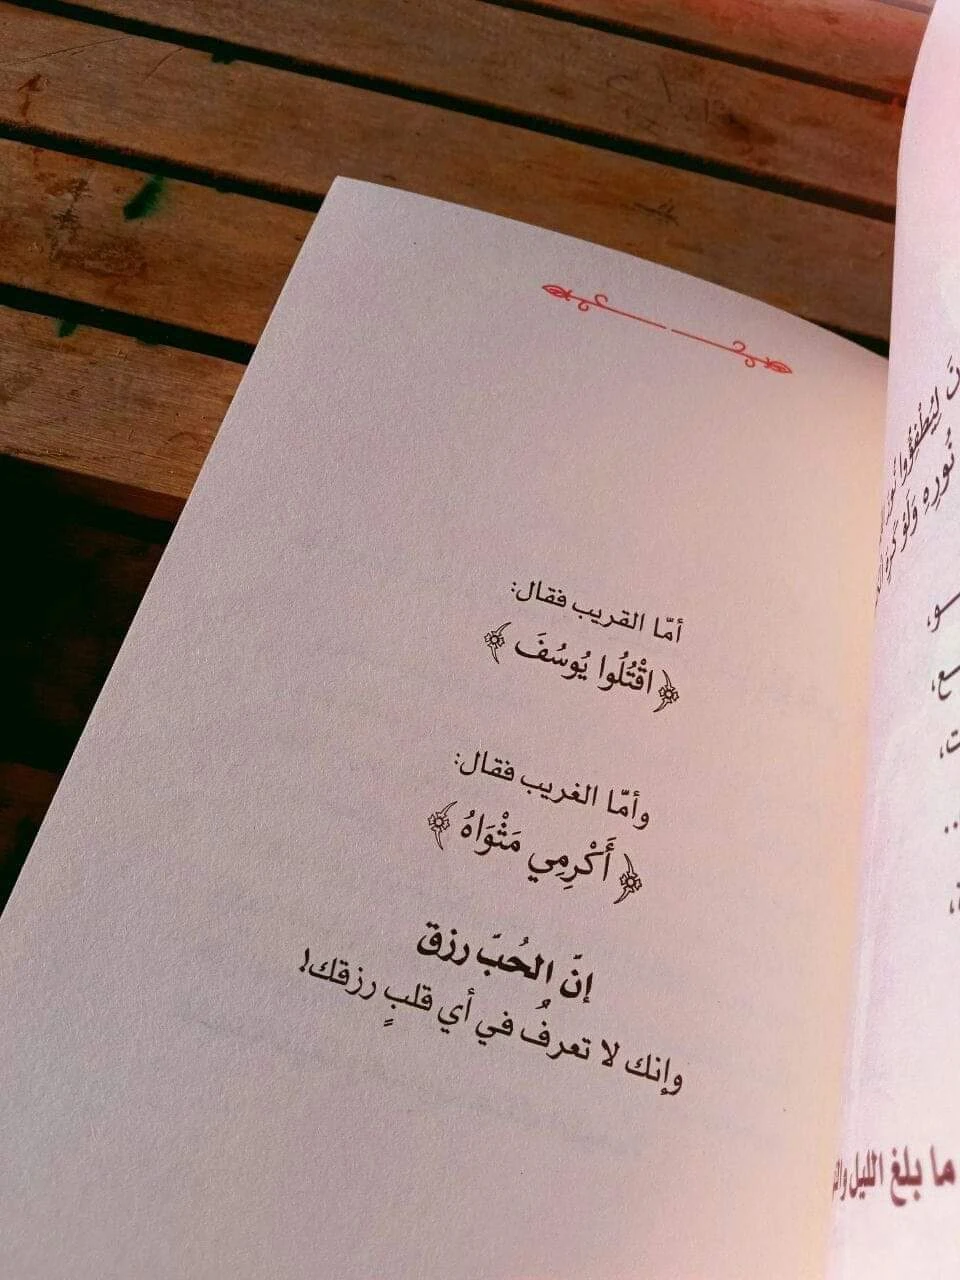 أمّا القريب فقال:
﴿ اقْتُلُوا يُوسُفَ ﴾
وأمّا الغريب فقال:
﴿ أَكْرِمِي مَثْوَاهُ ﴾
إنّ الحُبّ رزق
وإنك لا تعرفُ في أي قلبٍ رزقك!
لِيُطْفِؤُوا
نُورِهِ وَلَوْ كَرِهَ
ما بلغ الليل